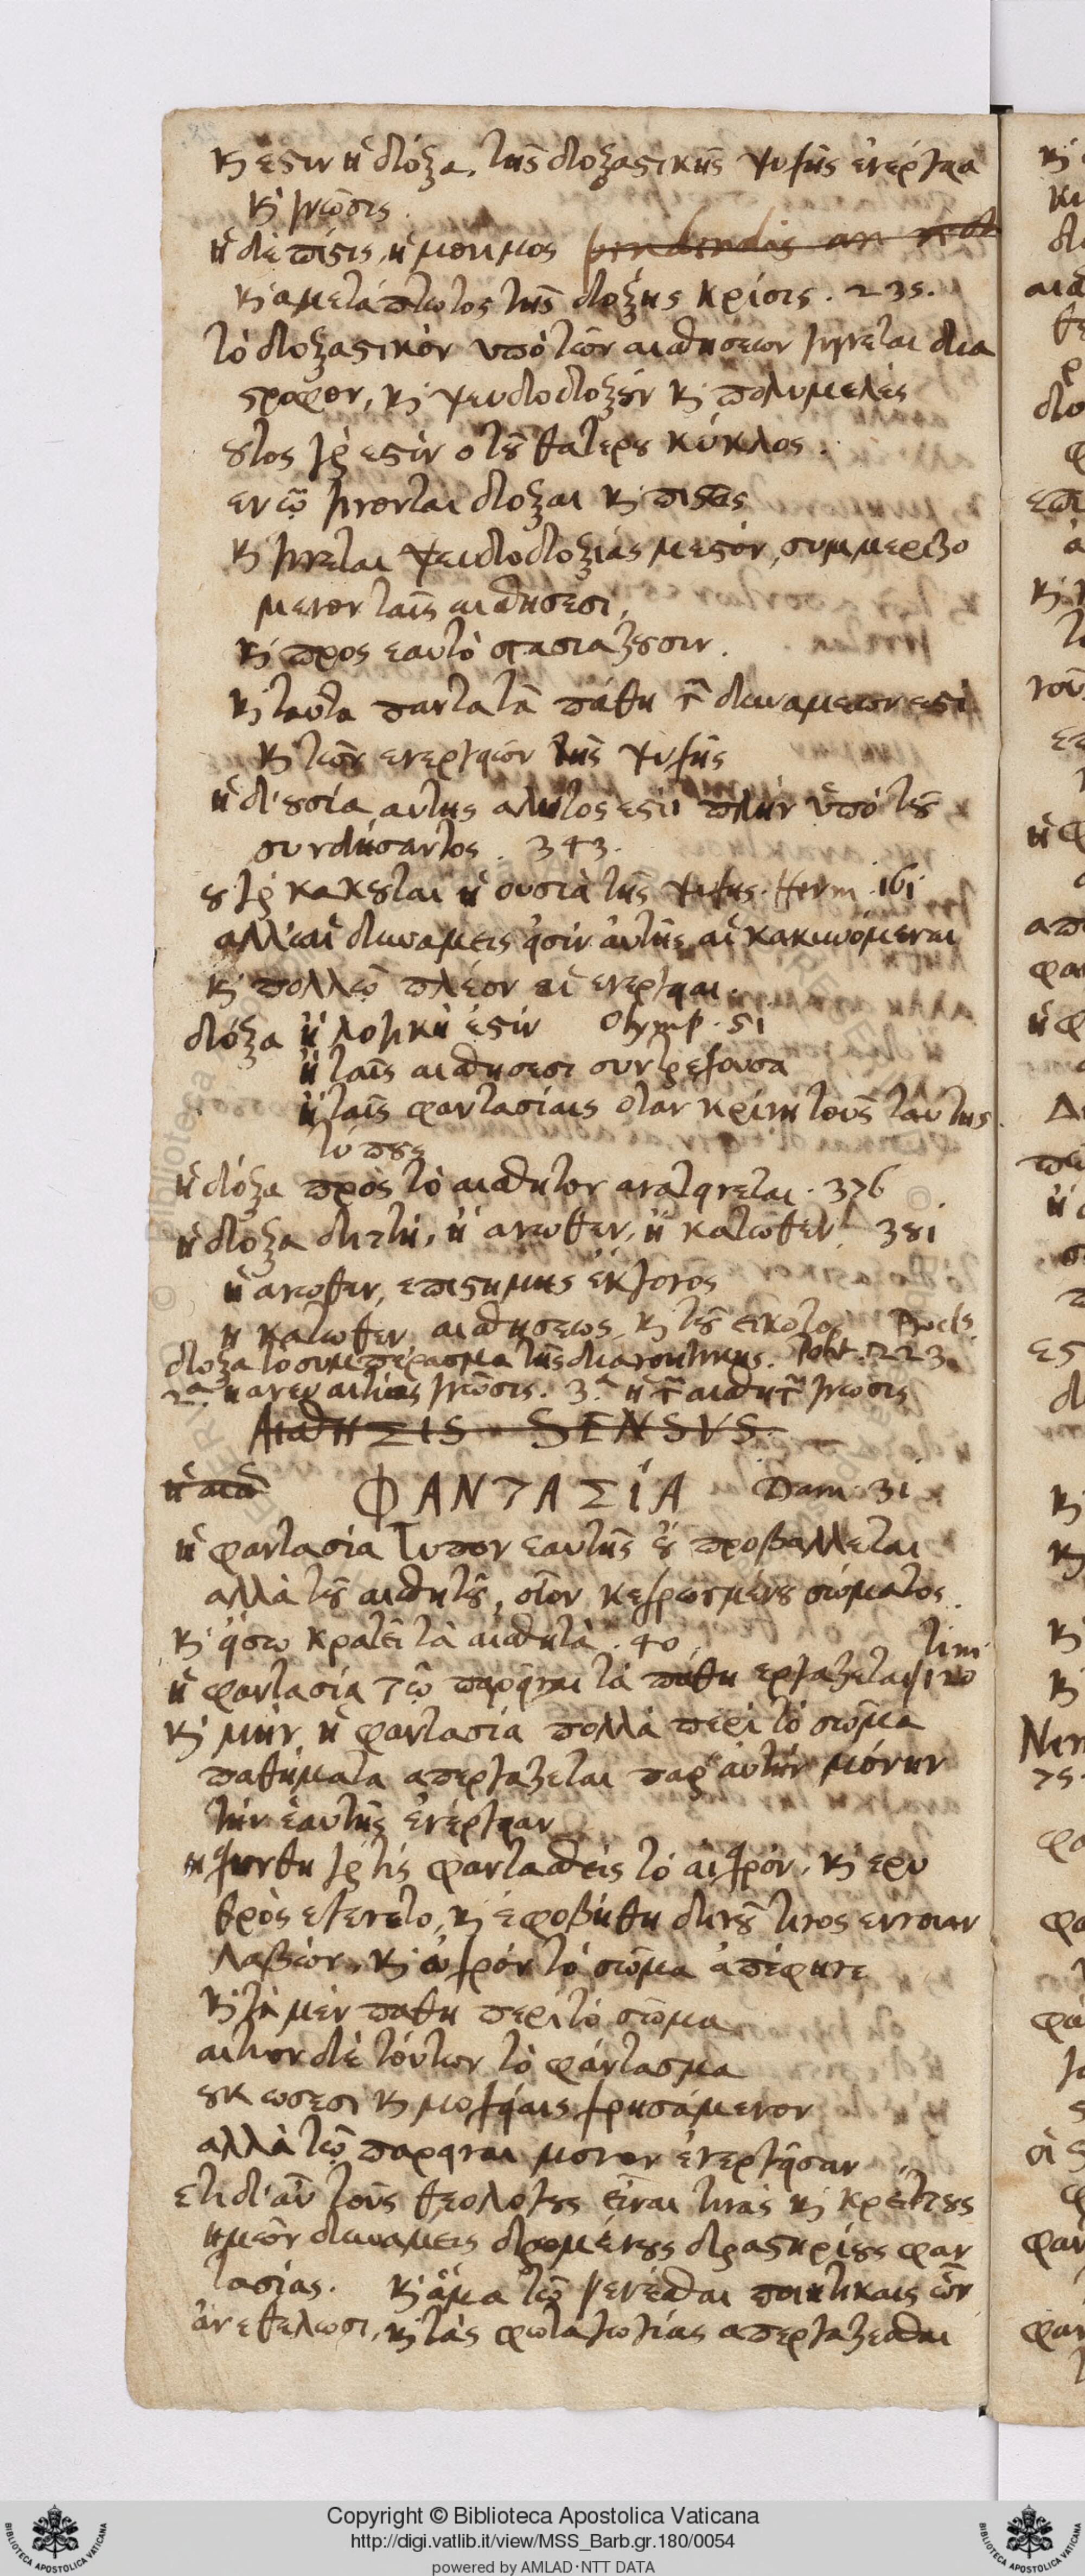 κ ἐστιν ἡ δόξα, τῆς δοξαστικῆς ψυχῆς ἐνέργεια
κ γνῶσις.
ἡ δὲ πίστις, ἡ μόνιμος
κ αμετάπτωτος τῆς δόξης κρίσις. 235.
τὸ δοξαστικὸν ὑπὸ τῶν αισθήσεων γίγνεται δια
στροφον, κ ψευδοδοξοῦν κ πολυμελὲς
οὗτος γὰρ εστίν ο τοῦ θατερου κύκλος.
εν ᾧ γίνονται δοξαι κ πίστεις
κ γίνεται ψευδοδοξίας μεστόν, συμμεριζο
μενον ταῖς αισθήσεσι,
κ προς εαυτὸ στασιαζουσιν.
κ ταῦτα παντα τὰ πάθη τῶν δυναμεων εστὶ
κ τῶν ενεργειῶν τῆς ψυχῆς
ἡ δ' ουσία αυτης αλυτος εστι πλὴν ὑπὸ τοῦ
συνδήσαντος. 343.
ου γὰρ κακοῦται ἡ ουσιὰ τῆς ψυχης. Herm. 161
αλλ' αἱ δυναμεις εἰσὶν αὐτῆς αἱ κακυνόμεναι
κ πολλῷ πλέον αἱ ενεργειαι.
δόξα ἢ λογικὴ ἐστὶν Olymp. 51
ἢ ταῖς αισθησεσι συντρεχουσα
ἢ ταῖς φαντασίαις ὅταν κρίνῃ τοὺς ταύτης
τύπους
ἡ δόξα πρὸς τὸ αισθητον ανατείνεται. 376
ἡ δόξα διττὴ, ἢ ανωθεν, ἢ κατωθεν. 381
ἡ ανωθεν, επιστημης ἔκγονος
ἡ κατωθεν αισθησεως κ τοῦ εἰκότος Procls.
δοξα τὸ συμπέρασμα τῆς διανοητικης. Polit. 223
2.ᵃ ἡ ανευ αιτίας γνῶσις. 3.ᵃ ἡ τῶν αισθητῶν γνωσις
ΑισθΗΣΙS SENSVS.
ἡ αισθ
ΦΑΝΤΑΣΊΑ Dam. 31
ἡ φαντασία τυπον εαυτῆς οὐ προβαλλεται
αλλὰ τοῦ αισθητοῦ, οἷον κεχρωσμένου σώματος.
κ εἴσω κρατεῖ τὰ αισθητὰ. 40
tim.
ἡ φαντασία τῷ παρεῖναι τὰ πάθη εργαζεται 120
κ μὴν, ἡ φαντασία πολλὰ περὶ τὸ σῶμα
παθήματα απεργαζεται παρ' αυτὴν μόνην
τὴν ἑαυτῆς ἐνέργειαν
ησχυνθη γὰρ τὶς φαντασθεὶς τὸ αισχρόν, κ ερυ
θρὸς εγενετο, κ ἐφοβήθη δεινοῦ τινος εννοιαν
λαβὼν, κ ὠχρὸν τὸ σῶμα ἀπέφηνε
κ τὰ μὲν παθη περὶ τὸ σῶμα
αιτιον δὲ τούτων τὸ φάντασμα
ουκ ωσεσι κ μοχλείαις χρησάμενον
αλλὰ τῷ παρειναι μονον ἐνεργῆσαν
ετι δ' αὖ τοὺς θεολογους εἶναι τινὰς κ κρείττους
ημῶν δυναμεις χρομένους δραστηρίους φαν
τασίας. κ ἅμα τῷ γενέσθαι ποιητικαις ὧν
ἂν εθελωσι, κ τὰς φωταγωγίας απεργαζεσθαι
Copyright © Biblioteca Apostolica Vaticana
http://digi.vatlib.it/view/MSS_Barb.gr.180/0054
powered by AMLAD·NTT DATA